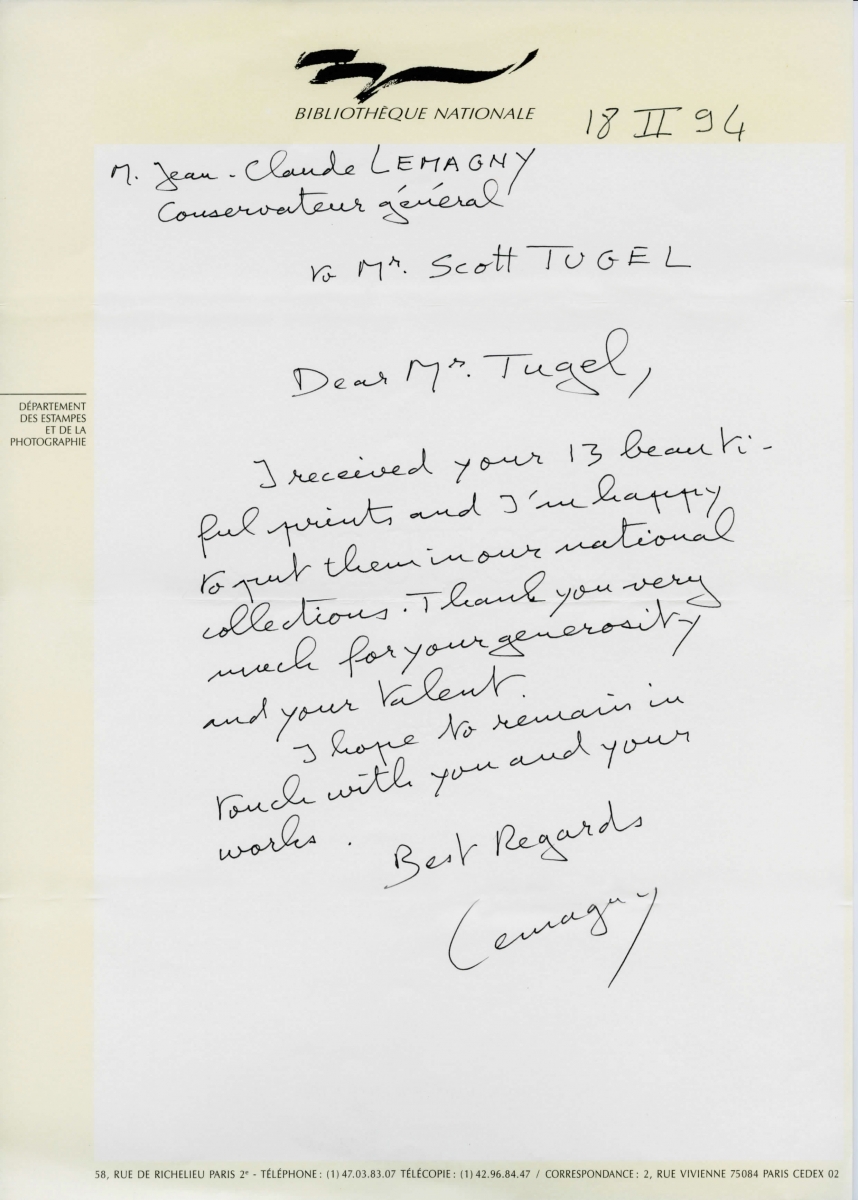 BIBLIOTHÈQUE NATIONALE
18 II 94
M. Jean-Claude LEMAGNY
Conservateur général
to Mr. Scott TUGEL
Dear Mr. Tugel,
DÉPARTEMENT
DES ESTAMPES
ET DE LA
PHOTOGRAPHIE
I received your 13 beauti-
ful prints and I'm happy
to put them in our national
collections. Thank you very
much for your generosity
and your talent.
I hope to remain in
touch with you and your
works.
Best Regards
Lemagny
58, RUE DE RICHELIEU PARIS 2e - TÉLÉPHONE : (1) 47.03.83.07 TÉLÉCOPIE : (1) 42.96.84.47 / CORRESPONDANCE : 2, RUE VIVIENNE 75084 PARIS CEDEX 02